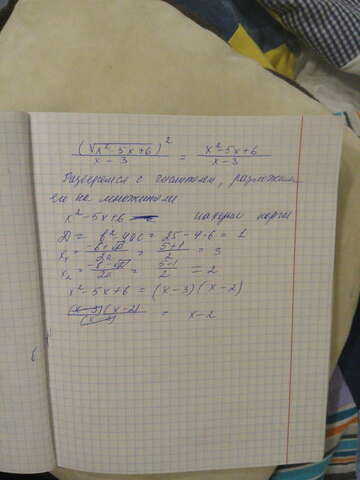 (√x² - 5x + 6)² / x - 3 = x² - 5x + 6 / x - 3
Разберемся с числителем, разложим
его на множители
x² - 5x + 6 находим корни
D = b² - 4ac = 25 - 4·6 = 1
x₁ = -b + √D / 2a = 5+1 / 2 = 3
x₂ = -b - √D / 2a = 5-1 / 2 = 2
x² - 5x + 6 = (x - 3)(x - 2)
(x - 3)(x - 2) / (x - 3) = x - 2